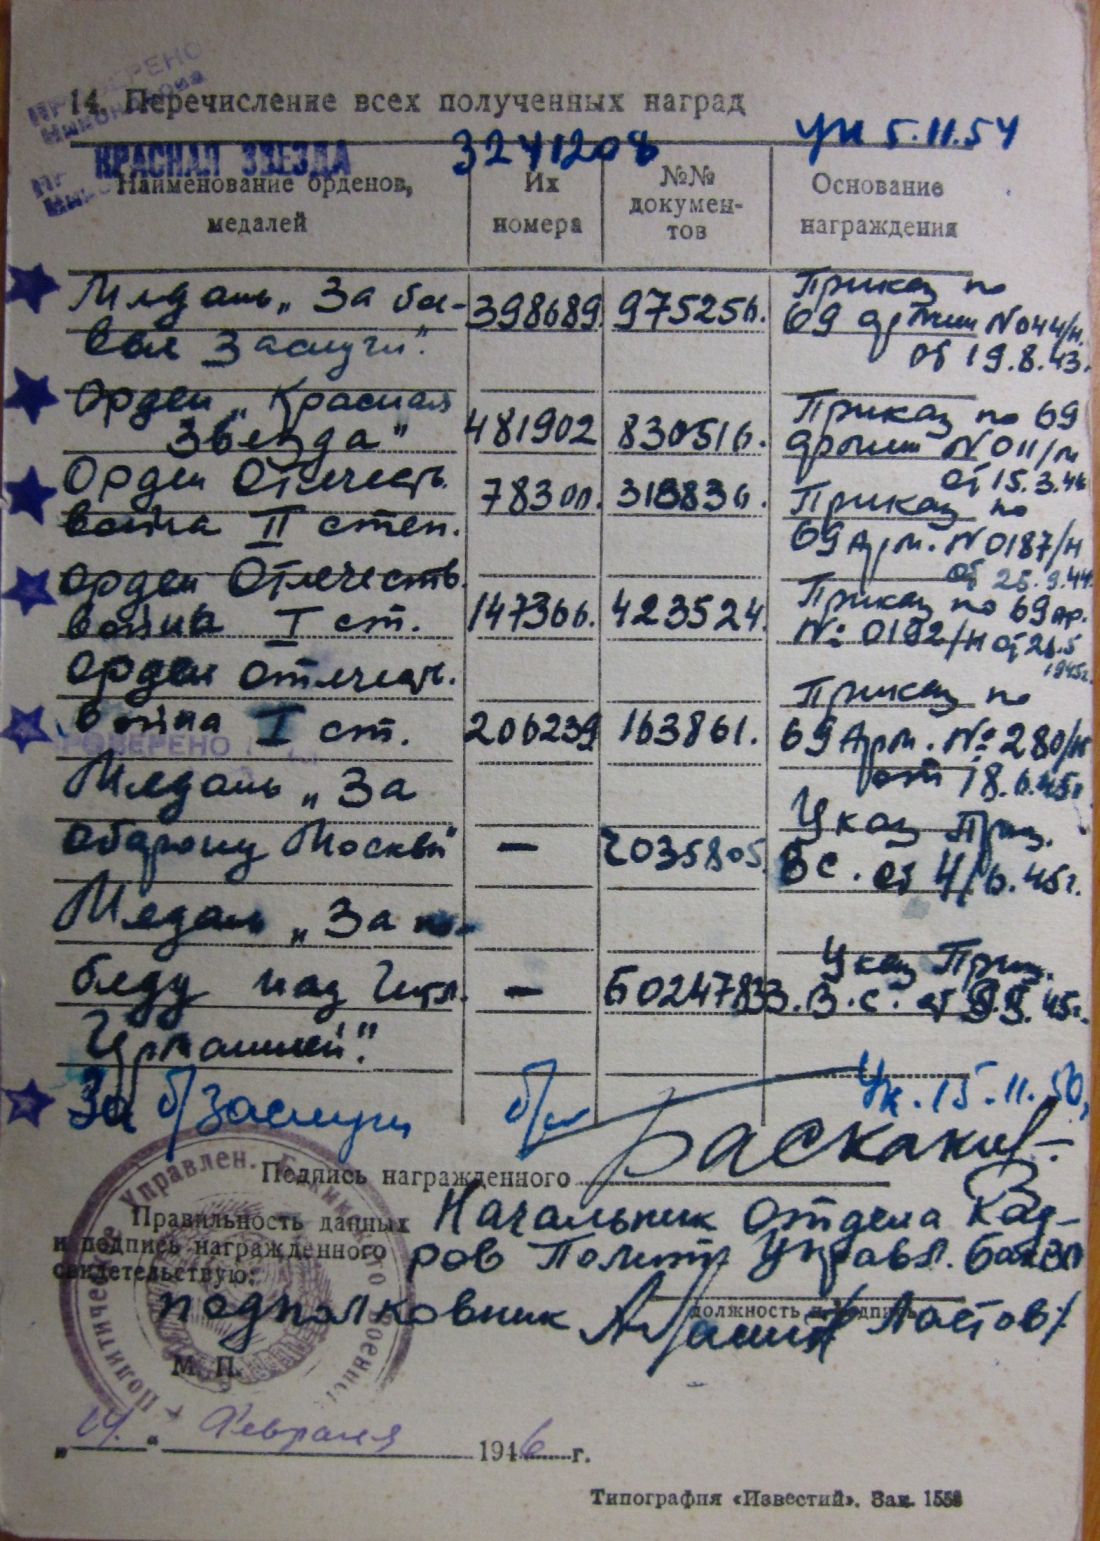 ПРОВЕРЕНО
14. Перечисление всех полученных наград
КРАСНАЯ ЗВЕЗДА 3241208 Ук 5.11.54
Наименование орденов, медалей
Их номера
№№ докумен-
тов
Основание
награждения
Медаль „За бое- 398689. 975256. Приказ по
вые заслуги". 69 армии N044/н.
от 19.8.43.
Орден „Красная Приказ по 69
Звезда" 481902 830516. армии N 011/н
от 15.3.44
Орден Отечеств. 78300. 313836. Приказ по
война II степ. 69 Арм. N 0187/н
от 25.9.44
Орден Отечеств. Приказ по 69 ар.
война I ст. 147366. 423524. № 0192/н от 26.5
1945г.
Орден Отечеств. Приказ по
война I ст. 206239 163861. 69 Арм. № 280/н
ПРОВЕРЕНО
от 18.6.45г
Медаль „За Указ През.
оборону Москвы" — 2035805. ВС. от 4/6.45г.
Медаль „За по-
беду над Герм. — 60247833. Указ През.
В.С. от 9.5.45г.
Германией".
За б/заслуги б/н Ук. 15.11.50,
Подпись награжденного Баскаков
Правильность данных
и подпись награжденного
свидетельствую:
Начальник отдела Кад-
ров Полит Управл. БакВО
должность и подпись
подполковник /Ластов/
Политическое Управлен. Бакинского Военного
М. П.
„14." Февраля 1946 г.
Типография «Известий». Зак. 1558